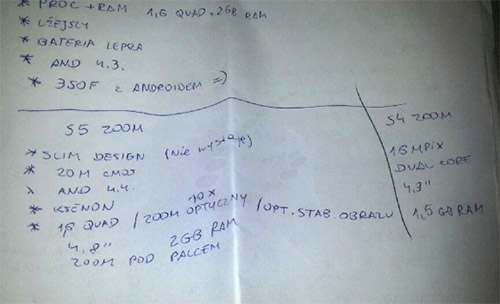 * PROC + RAM 1,6 QUAD + 2GB RAM
* LŻEJSZY
* BATERIA LEPSZA
* AND 4.3.
* 350F z ANDROIDEM =)
S5 ZOOM
* SLIM DESIGN (Nie wystaje)
* 20M CMOS
* AND 4.4.
* KSENON
* 1,6 QUAD / 10x ZOOM OPTYCZNY / OPT. STAB. OBRAZU
4,8" 2GB RAM
ZOOM POD PALCEM
S4 ZOOM
16MPIX
DUAL CORE
4,3"
1,5 GB RAM